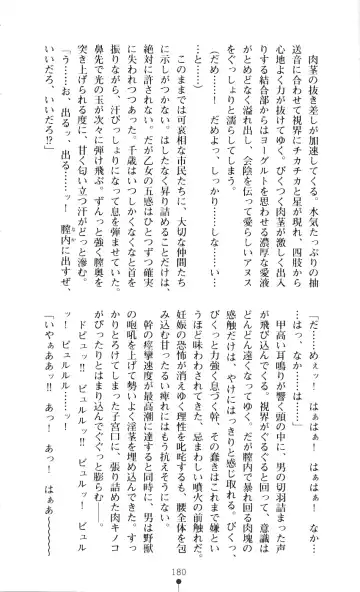 肉茎の抜き差しが加速してくる。水気たっぷりの抽
送音に合わせて視界にチカチカと星が現れ、四肢から
心地よく力が抜けてゆく。びくつく肉茎が激しく出入
りする結合部からはヨーグルトを思わせる濃厚な愛液
がとめどなく溢れ出し、会陰を伝って愛らしいアヌス
をぐっしょりと濡らしてしまう。
（だめ……！　だめよっ、しっかり……しな……い……
……と……）
　このままでは可哀相な市民たちに、大切な仲間たち
に示しがつかない。はしたなく昇り詰めることだけは、
絶対に許されない。だが乙女の五感はひとつずつ確実
に失われつつあった。千歳はいつしかくなくなと首を
振りながら、汗びっしょりになって息を弾ませていた。
鼻先で光の玉が次々に弾け飛ぶ。ずんっと強く膣奥を
突き上げられる度に、甘く匂い立つ汗がどっと滲む。
「う……お、出るッ、出る……ッ！　膣内に出すぜ、
いいだろ、いいだろ!?」
「だ……めぇッ！　はぁはぁ！　はぁはぁ！　なか…
…はっ、なか……は……！」
　甲高い耳鳴りが響く頭の中に、男の切羽詰まった声
が飛び込んでくる。視界がぐるぐると回って、意識は
どんどん遠くなってゆく。だが膣内で暴れ回る肉塊の
感触だけは、やけにはっきりと感じ取れる。びくっ、
びくっと力強く息づく幹、その蠢きはこれまで嫌とい
うほど味わわされてきた、忌まわしい噴火の前触れだ。
妊娠の恐怖が消えゆく理性を叱咤するも、腰全体を包
み込む甘ったるい痺れにはもう抗えそうにない。
　幹の痙攣速度が最高潮に達すると同時に、男は野獣
の咆吼を上げて勢いよく淫茎を埋め込んできた。すっ
かりとろけてしまった子宮口に、張り詰めた肉キノコ
がぴったりとはまり込んでぐぐっと膨らむ――。
　ドピュッ！　ビュルルッ！　ビュルッ！　ビュル
ッ！　ビュルルル……ッ！
「いやぁああッ!!　あっ！　あっ！　はぁあ～～～～
180